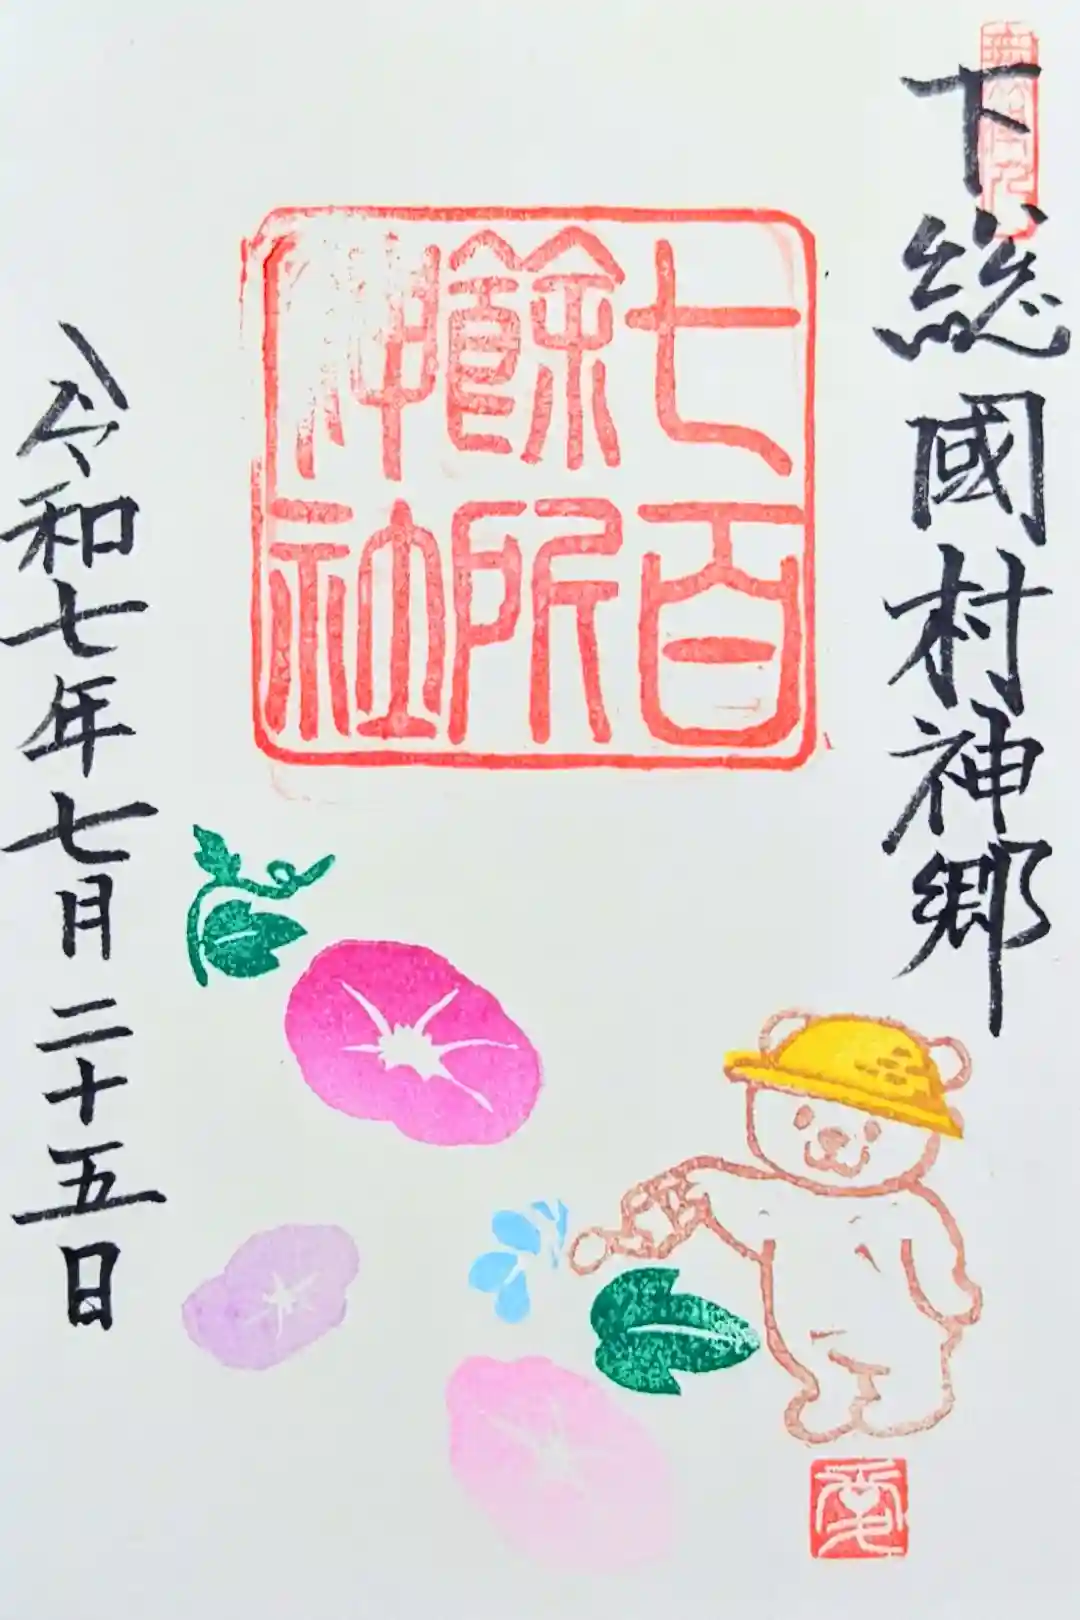 下総國村神郷
七百
餘所
神社
令和七年七月二十五日
愛